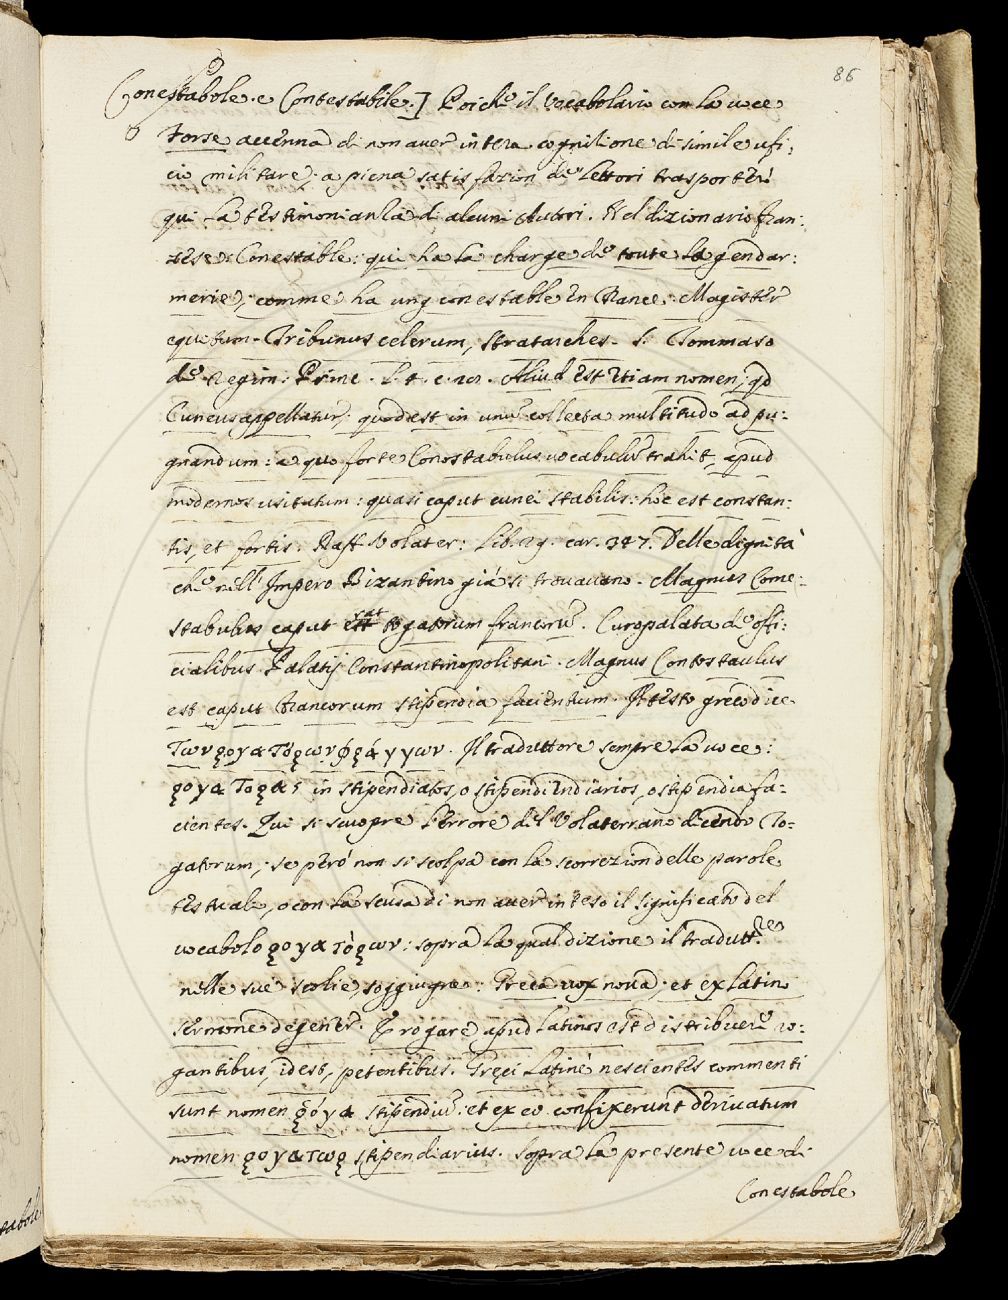 86
Conestabole. e Contestabile.] Poiche il Vocabolario con la voce
Forse accenna di non aver intera cognitione di simile ufi:
cio militare; a piena satisfazion de Lettori trasporterò
qui la testimonianza di alcuni Autori. Nel dizionario fran:
zese. Conestable: qui ha la charge de toute la gendar:
merie, comme ha ung conestable en France. Magister
equitum. Tribunus celerum, Stratarches. S. Tommaso
de Regim: Princ. l. 4. c. Aliud est etiam nomen, qd
Cuneus appellatur; quod est in unū collecta multitudo ad pu:
gnandum: a quo forte Conostabulus vocabulū trahit, apud
modernos usitatum: quasi caput cunei stabilis: hoc est constan:
tis, et fortis. Raff. Volater: Lib. 29. car. 347. Delle dignità
che nell' Impero Bizantino già si trovavano. Magnus Come:
stabulus caput est rat togatorum francorū. Curopalata de offi:
cialibus Palatij Constantinopolitani. Magnus Contostaulus
est caput francorum stipendia facientium. Il testo greco dice
Τωνρογατόρων φράγγων. Il traduttore sempre la voce:
ρογατορας in stipendiatos, o stipendiendiarios, o stipendia fa:
cientes. Qui si scuopre l'errore del Volaterrano dicendo To:
gatorum; se però non si scolpa con la scorrezion delle parole
testuali, o con la scusa di non aver inteso il significato del
vocabolo ρογατόρων: sopra la qual dizione il tradutt.re
nelle sue scolie, soggiugne: Greca vox nova; et ex latino
sermone degener. Erogare apud Latinos est distribuere ro:
gantibus, idest, petentibus. Greci Latinè nescientes commenti
sunt nomen ρόγα stipendiū. et ex eo confixerunt derivatum
nomen ρογατωρ stipendiarius. Sopra la presente voce di
Conestabole